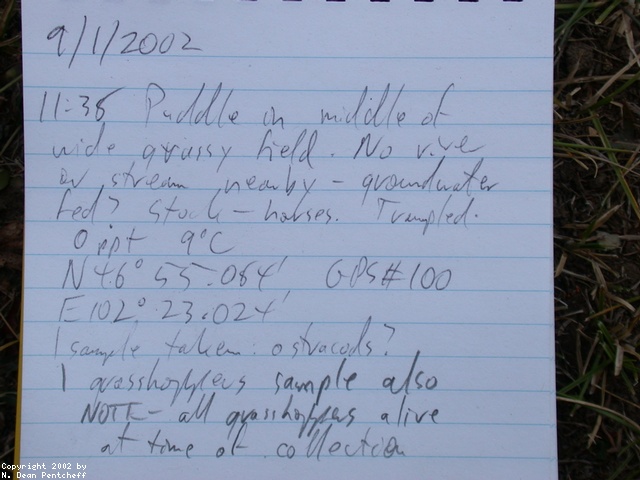 9/1/2002
11:35 Puddle in middle of
wide grassy field. No river
or stream nearby - groundwater
fed? Stock - horses. Trampled.
0 ppt 9°C
N 46° 55.064' GPS#100
E 102° 23.024'
1 sample taken: ostracods?
1 grasshoppers sample also
NOTE - all grasshoppers alive
at time of collection
Copyright 2002 by
N. Dean Pentcheff